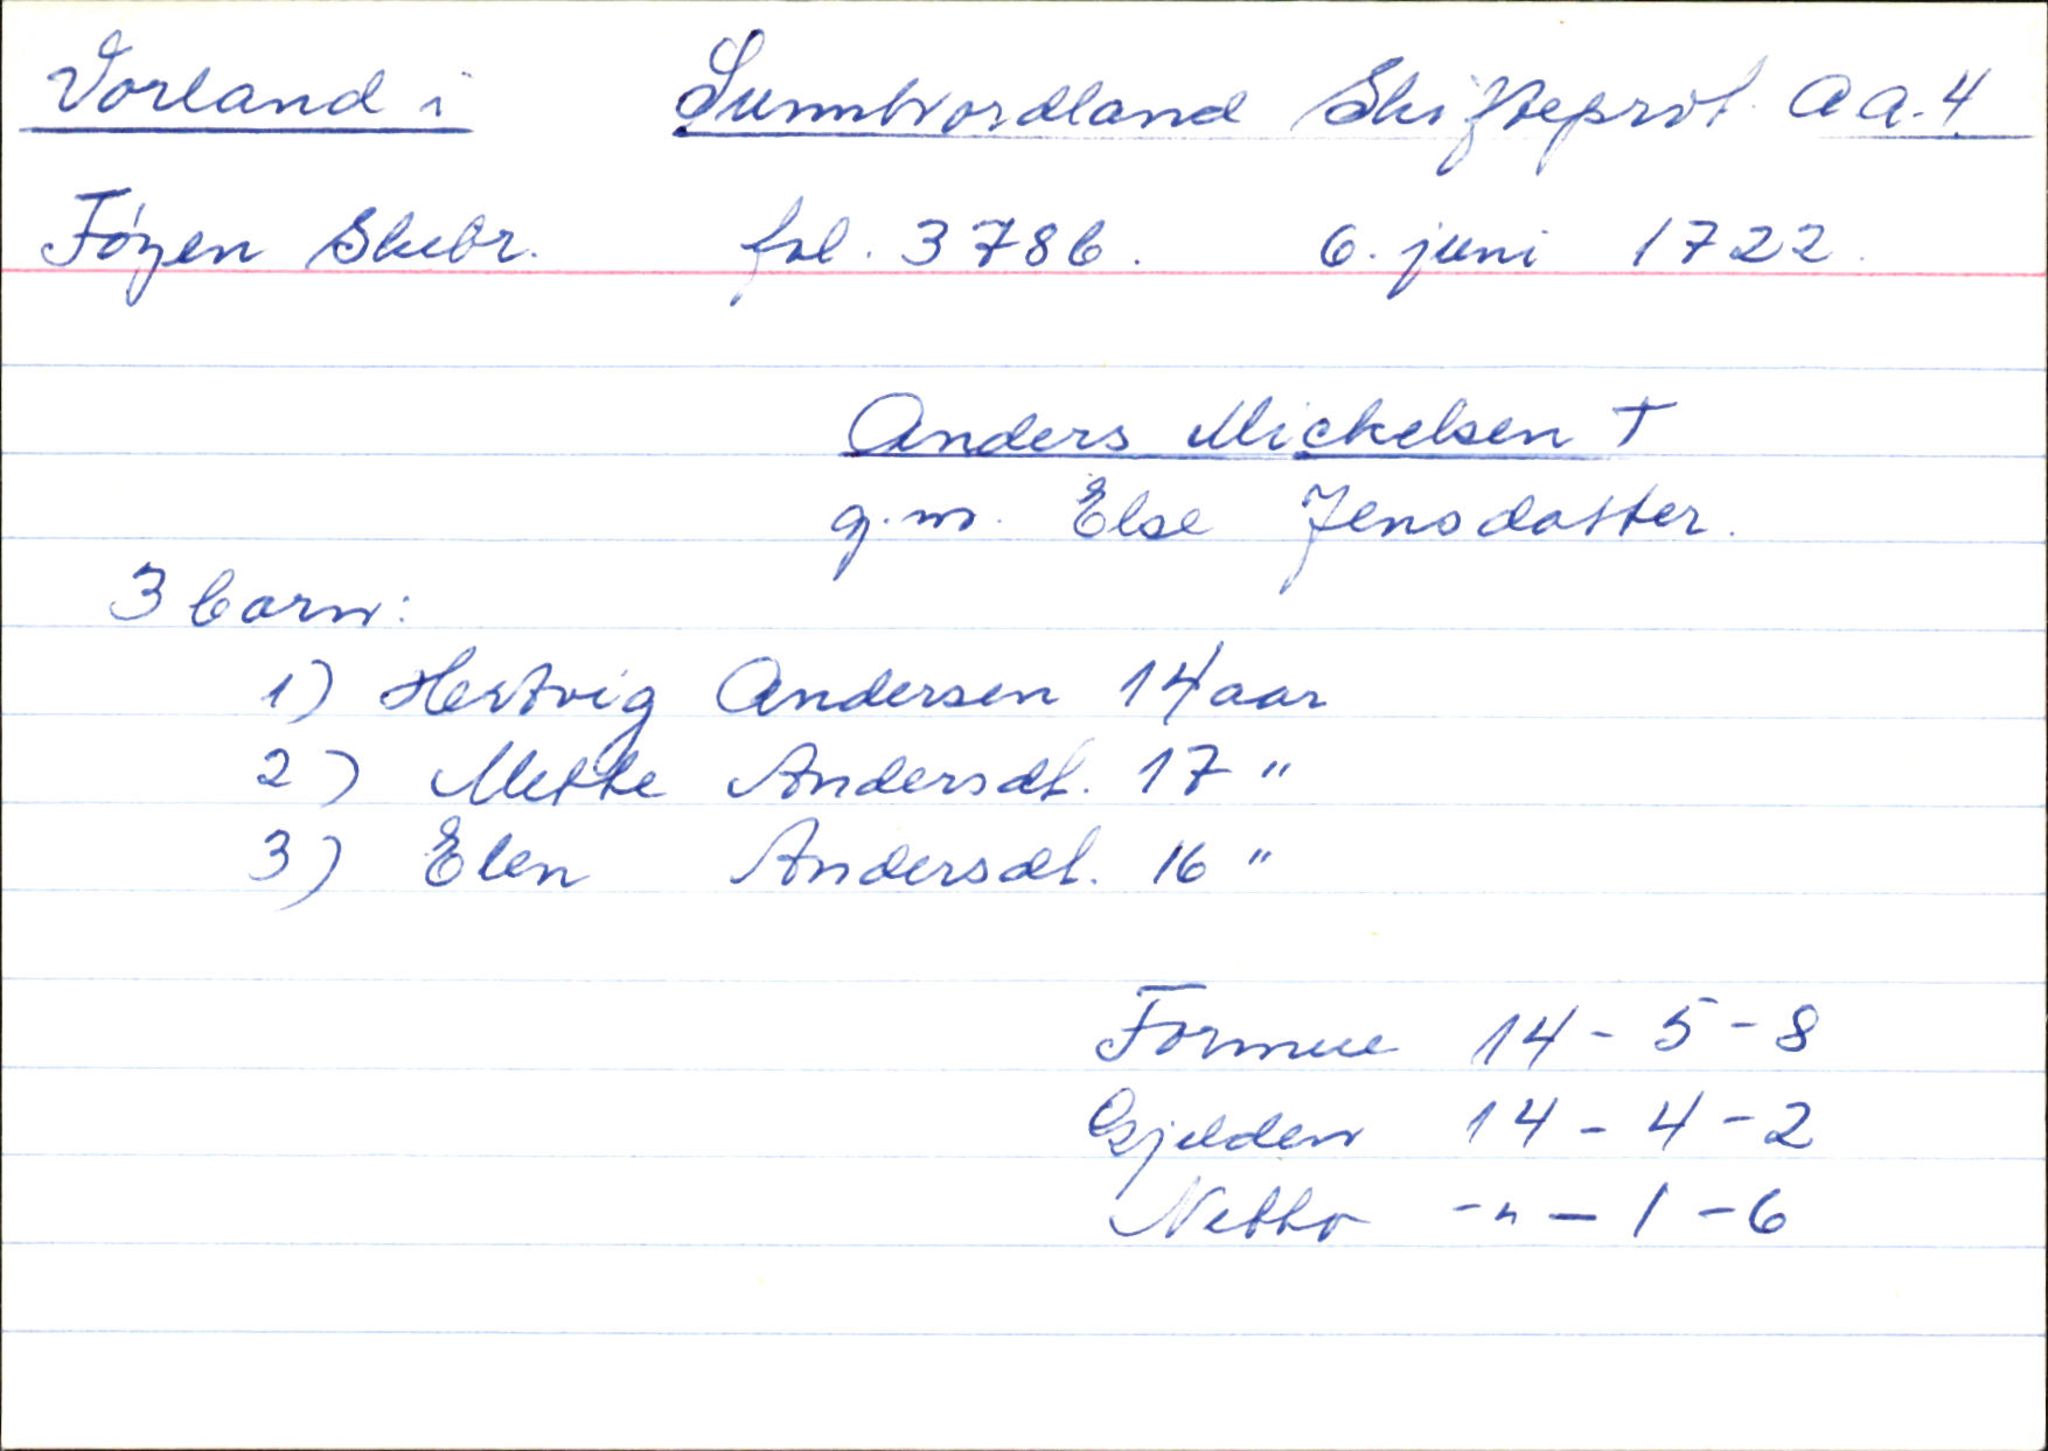 Vorland i Sunnhordland Skifteprot. AA.4
Føyen Skibr. fol. 378b. 6. juni 1722.
Anders Mickelsen †
g.m. Else Jensdatter.
3 barn:
1) Hertvig Andersen 14 aar
2) Mette Andersdt. 17 "
3) Elen Andersdt. 16 "
Formue 14 - 5 - 8
Gjelden 14 - 4 - 2
Netto - " - 1 - 6